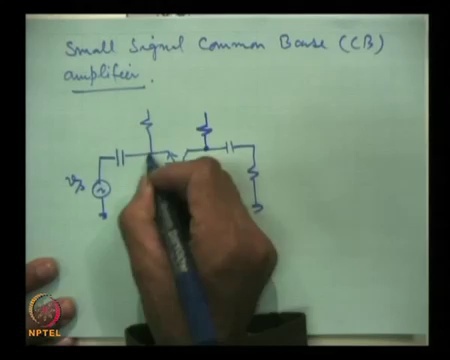 Small Signal Common Base (CB)
amplifier.
vs
NPTEL